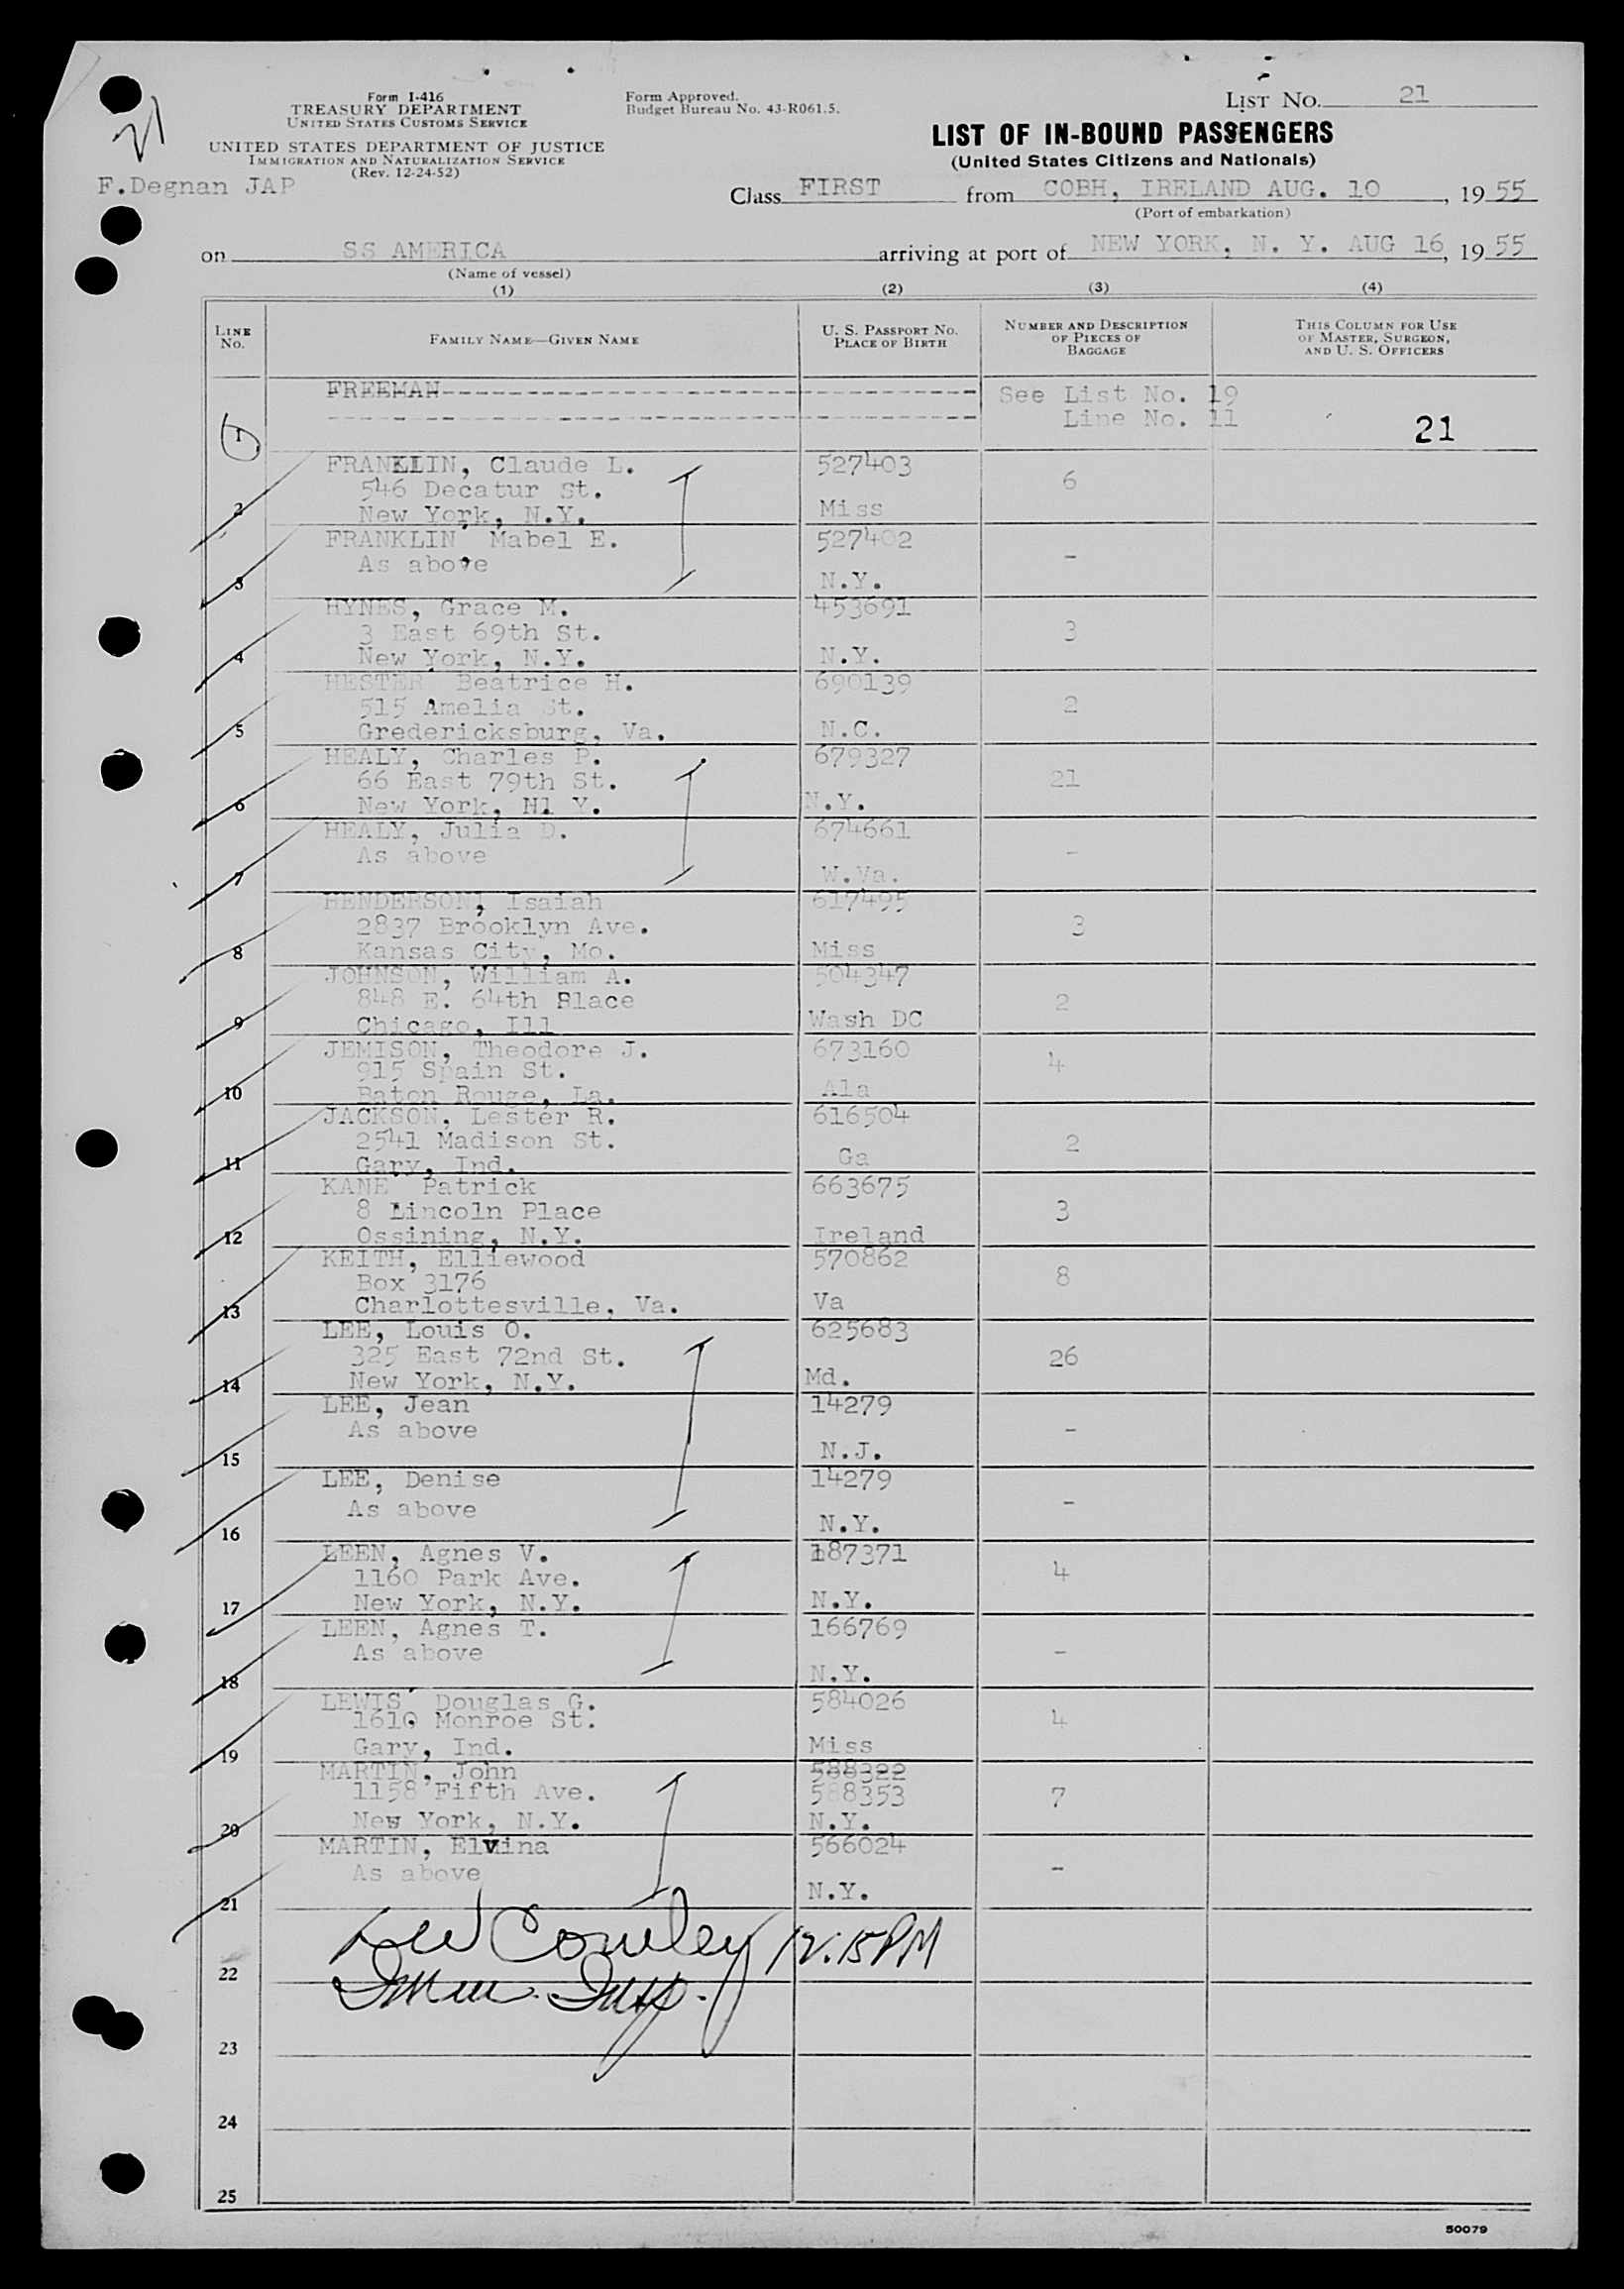 21
Form I-416
TREASURY DEPARTMENT
UNITED STATES CUSTOMS SERVICE
UNITED STATES DEPARTMENT OF JUSTICE
IMMIGRATION AND NATURALIZATION SERVICE
(Rev. 12-24-52)
F.Degnan JAP
Form Approved.
Budget Bureau No. 43-R061.5.
LIST No. 21
LIST OF IN-BOUND PASSENGERS
(United States Citizens and Nationals)
Class FIRST from COBH, IRELAND AUG. 10, 19 55
(Port of embarkation)
on SS AMERICA arriving at port of NEW YORK, N. Y. AUG 16, 19 55
(Name of vessel)
(1) (2) (3) (4)
LINE No. FAMILY NAME—GIVEN NAME U. S. PASSPORT No. PLACE OF BIRTH NUMBER AND DESCRIPTION OF PIECES OF BAGGAGE THIS COLUMN FOR USE OF MASTER, SURGEON, AND U. S. OFFICERS
FREEMAN See List No. 19
Line No. 11
1 21
FRANKLIN, Claude L. 527403
546 Decatur St. 6
2 New York, N.Y. Miss
FRANKLIN, Mabel E. 527402
As above -
3 N.Y.
HYNES, Grace M. 453691
3 East 69th St. 3
4 New York, N.Y. N.Y.
HESTER Beatrice H. 690139
515 Amelia St. 2
5 Gredericksburg, Va. N.C.
HEALY, Charles P. 679327
66 East 79th St. 21
6 New York, Nl Y. N.Y.
HEALY, Julia D. 674661
As above -
7 W.Va.
HENDERSON, Isaiah 617495
2837 Brooklyn Ave. 3
8 Kansas City, Mo. Miss
JOHNSON, William A. 504347
848 E. 64th Place 2
9 Chicago, Ill Wash DC
JEMISON, Theodore J. 673160
915 Spain St. 4
10 Baton Rouge, La. Ala
JACKSON, Lester R. 616504
2541 Madison St. 2
11 Gary, Ind. Ga
KANE Patrick 663675
8 Lincoln Place 3
12 Ossining, N.Y. Ireland
KEITH, Elliewood 570862
Box 3176 8
13 Charlottesville, Va. Va
LEE, Louis O. 625683
325 East 72nd St. 26
14 New York, N.Y. Md.
LEE, Jean 14279
As above -
15 N.J.
LEE, Denise 14279
As above -
16 N.Y.
LEEN, Agnes V. 187371
1160 Park Ave. 4
17 New York, N.Y. N.Y.
LEEN, Agnes T. 166769
As above -
18 N.Y.
LEWIS Douglas G. 584026
1610 Monroe St. 4
19 Gary, Ind. Miss
MARTIN, John 588322
1158 Fifth Ave. 588353 7
20 New York, N.Y. N.Y.
MARTIN, Elvina 566024
As above -
21 N.Y.
Cowley 12:15PM
22 Imm. Insp.
23
24
25
50079